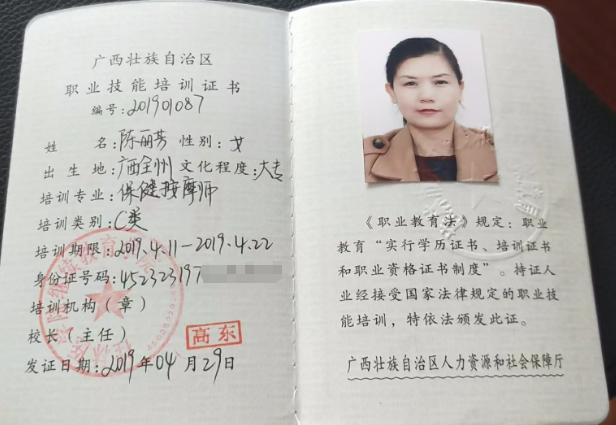 广西壮族自治区
职业技能培训证书
编号:201901087
姓 名:陈丽芳 性别:女
出 生 地:广西全州 文化程度:大专
培训专业:保健按摩师
培训类别:C类
培训期限:2019.4.11-2019.4.22
身份证号码:452323197
培训机构(章)
校长(主任) 高东
发证日期:2019年04月29日
《职业教育法》规定:职业
教育“实行学历证书、培训证书
和职业资格证书制度”。持证人
业经接受国家法律规定的职业技
能培训,特依法颁发此证。
广西壮族自治区人力资源和社会保障厅